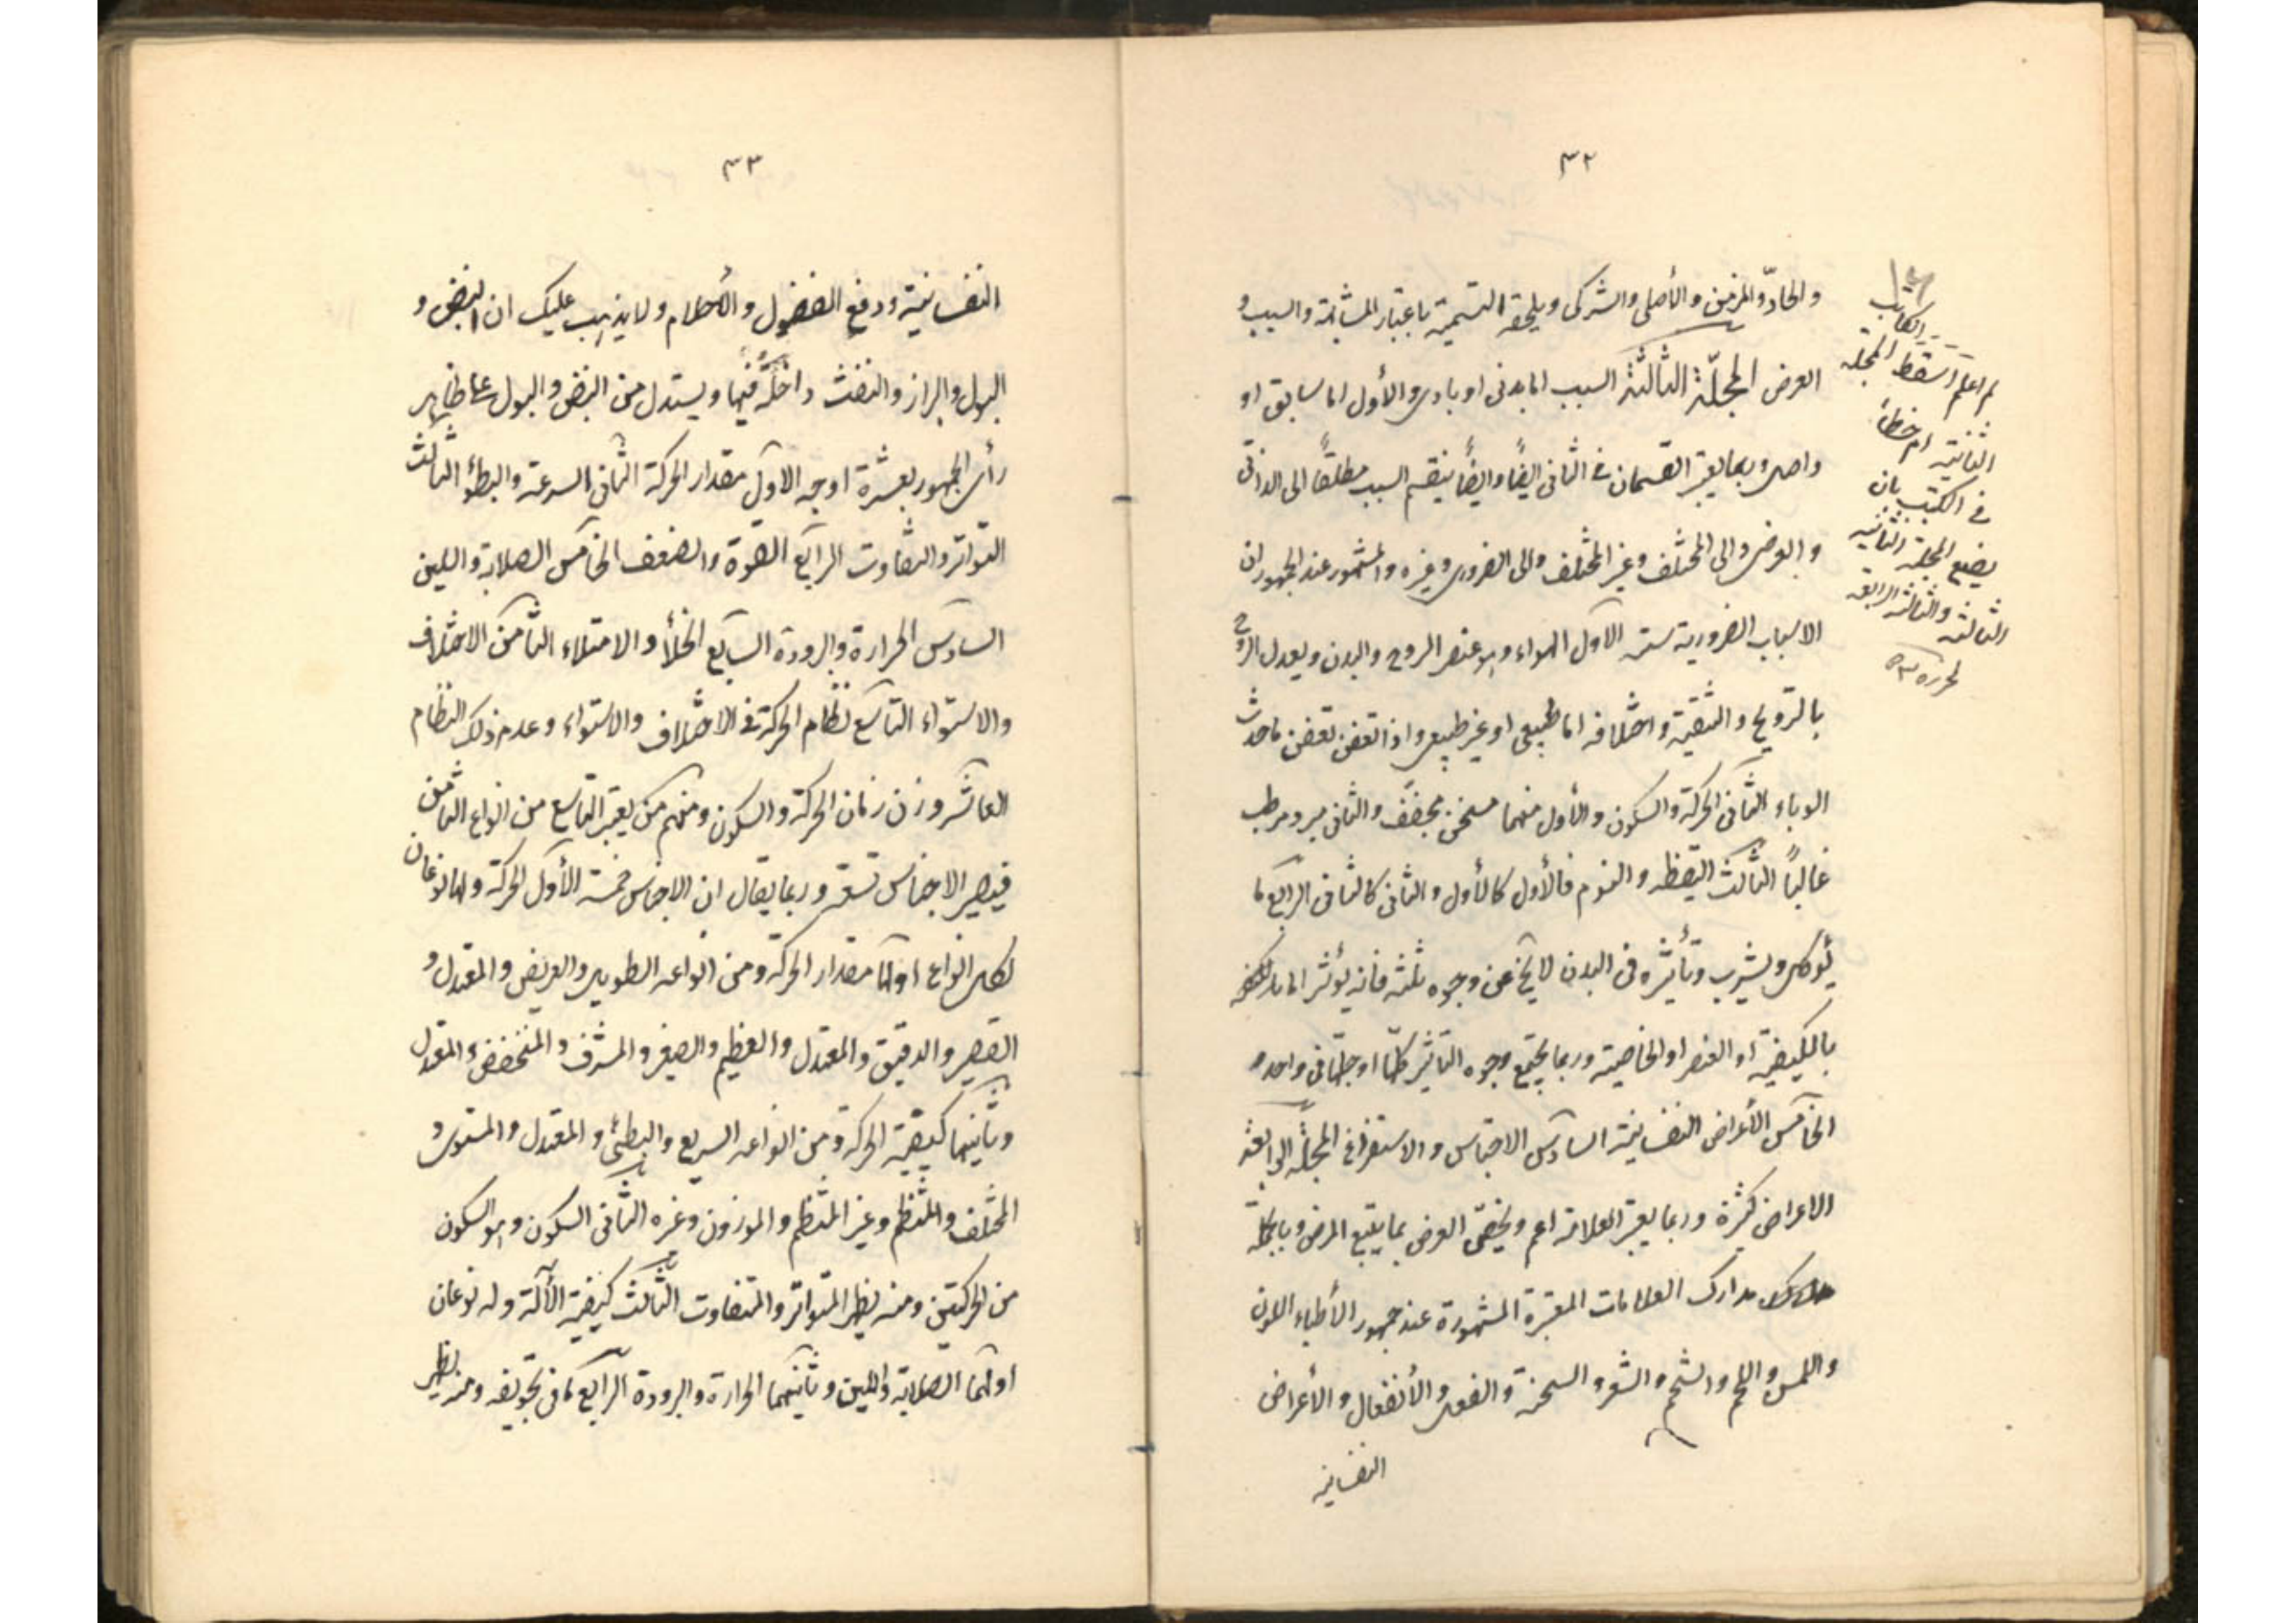 ٣٢
والحادّ والمزمن والأصلى والشركى ويلحقه التسمية باعتبار المشابهة والسبب و
العرض المجلّة الثالثة السبب اما بدنى او بادى والأول اما سابق او
واصل وربما يعتبر القسمان فى الثانى ايضًا وايضًا ينقسم السبب مطلقًا الى الذاتى
والعرضى والى المختلف وغير المختلف والى الضرورى وغيره والمشهور عند الجمهور ان
الاسباب الضرورية ستة الاول الهواء وهو عنصر الروح والبدن ويعدل الروح
بالترويح والتنقية واختلافه اما طبيعى او غير طبيعى واذا تعفن تعفن ما حدث
الوباء الثانى الحركة والسكون والأول منهما مسخن مجفف والثانى مبرد مرطب
غالبًا الثالث اليقظه والنوم فالأول كالأول والثانى كالثانى الرابع ما
يُوكل ويشرب وتأثيره فى البدن لا يخ عن وجوه ثلثه فانه يؤثر اما
بالكيفية او العنصر او الخاصية وربما يجتمع وجوه التأثير كلّها او جلّها فى واحد
الخامس الأعراض النفسانية السادس الاحتباس والاستفراغ المجلّة الرابعة
الاعراض كثيرة وربما يعتبر العلامة اعم ويخصّ العرض بما يتبع المرض وبالجملة
مدارك العلامات المعتبرة المشهورة عند جمهور الأطباء اللون
واللمس واللحم والشحم والشعر والسحنة والفعل والأنفعال والأعراض
النفسانيه
الكاتب
لم اعلم اسقط المجله
الثانية ام خطأ
فى الكتب بان
يضع المجلة الثانية
الثالثه والثالثه الرابعه
لمحرره
٣٣
النفسانية ودفع الفضول والأحلام ولا يذهب عليك ان النبض و
البول والبراز والنفث داخلة فيها ويستدل من النبض والبول على ظاهر
رأى الجمهور بعشرة اوجه الاول مقدار الحركة الثانى السرعة والبطؤ الثالث
التواتر والتفاوت الرابع القوة والضعف الخامس الصلابة واللين
السادس الحرارة والبرودة السابع الخلأ والامتلاء الثامن الاختلاف
والاستواء التاسع نظام الحركة فى الاختلاف والاستواء وعدم ذلك النظام
العاشر وزن زمان الحركة والسكون ومنهم من يعتبر التاسع من انواع الثامن
فيصير الاجناس تسعة وربما يقال ان الاجناس خمسة الأول الحركة ولها نوعان
لكل انواع اولها مقدار الحركة ومن انواعه الطويل والعريض والمعتدل و
القصير والدقيق والمعتدل والعظيم والصغير والمشرف والمنخفض والمعتدل
وثانيها كيفية الحركة ومن انواعه السريع والبطئ والمعتدل والمستوى و
المختلف والمنتظم وغير المنتظم والموزون وغيره الثانى السكون وهو السكون
من الحركتين ومنه يظهر المتواتر والمتفاوت الثالث كيفية الآلة وله نوعان
اولهما الصلابة واللين وثانيهما الحرارة والبرودة الرابع ما فى تجويفه ومنه يظهر